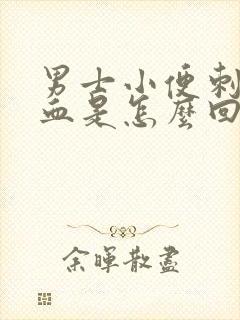 男士小便刺
血是怎麼回
余暉散盡